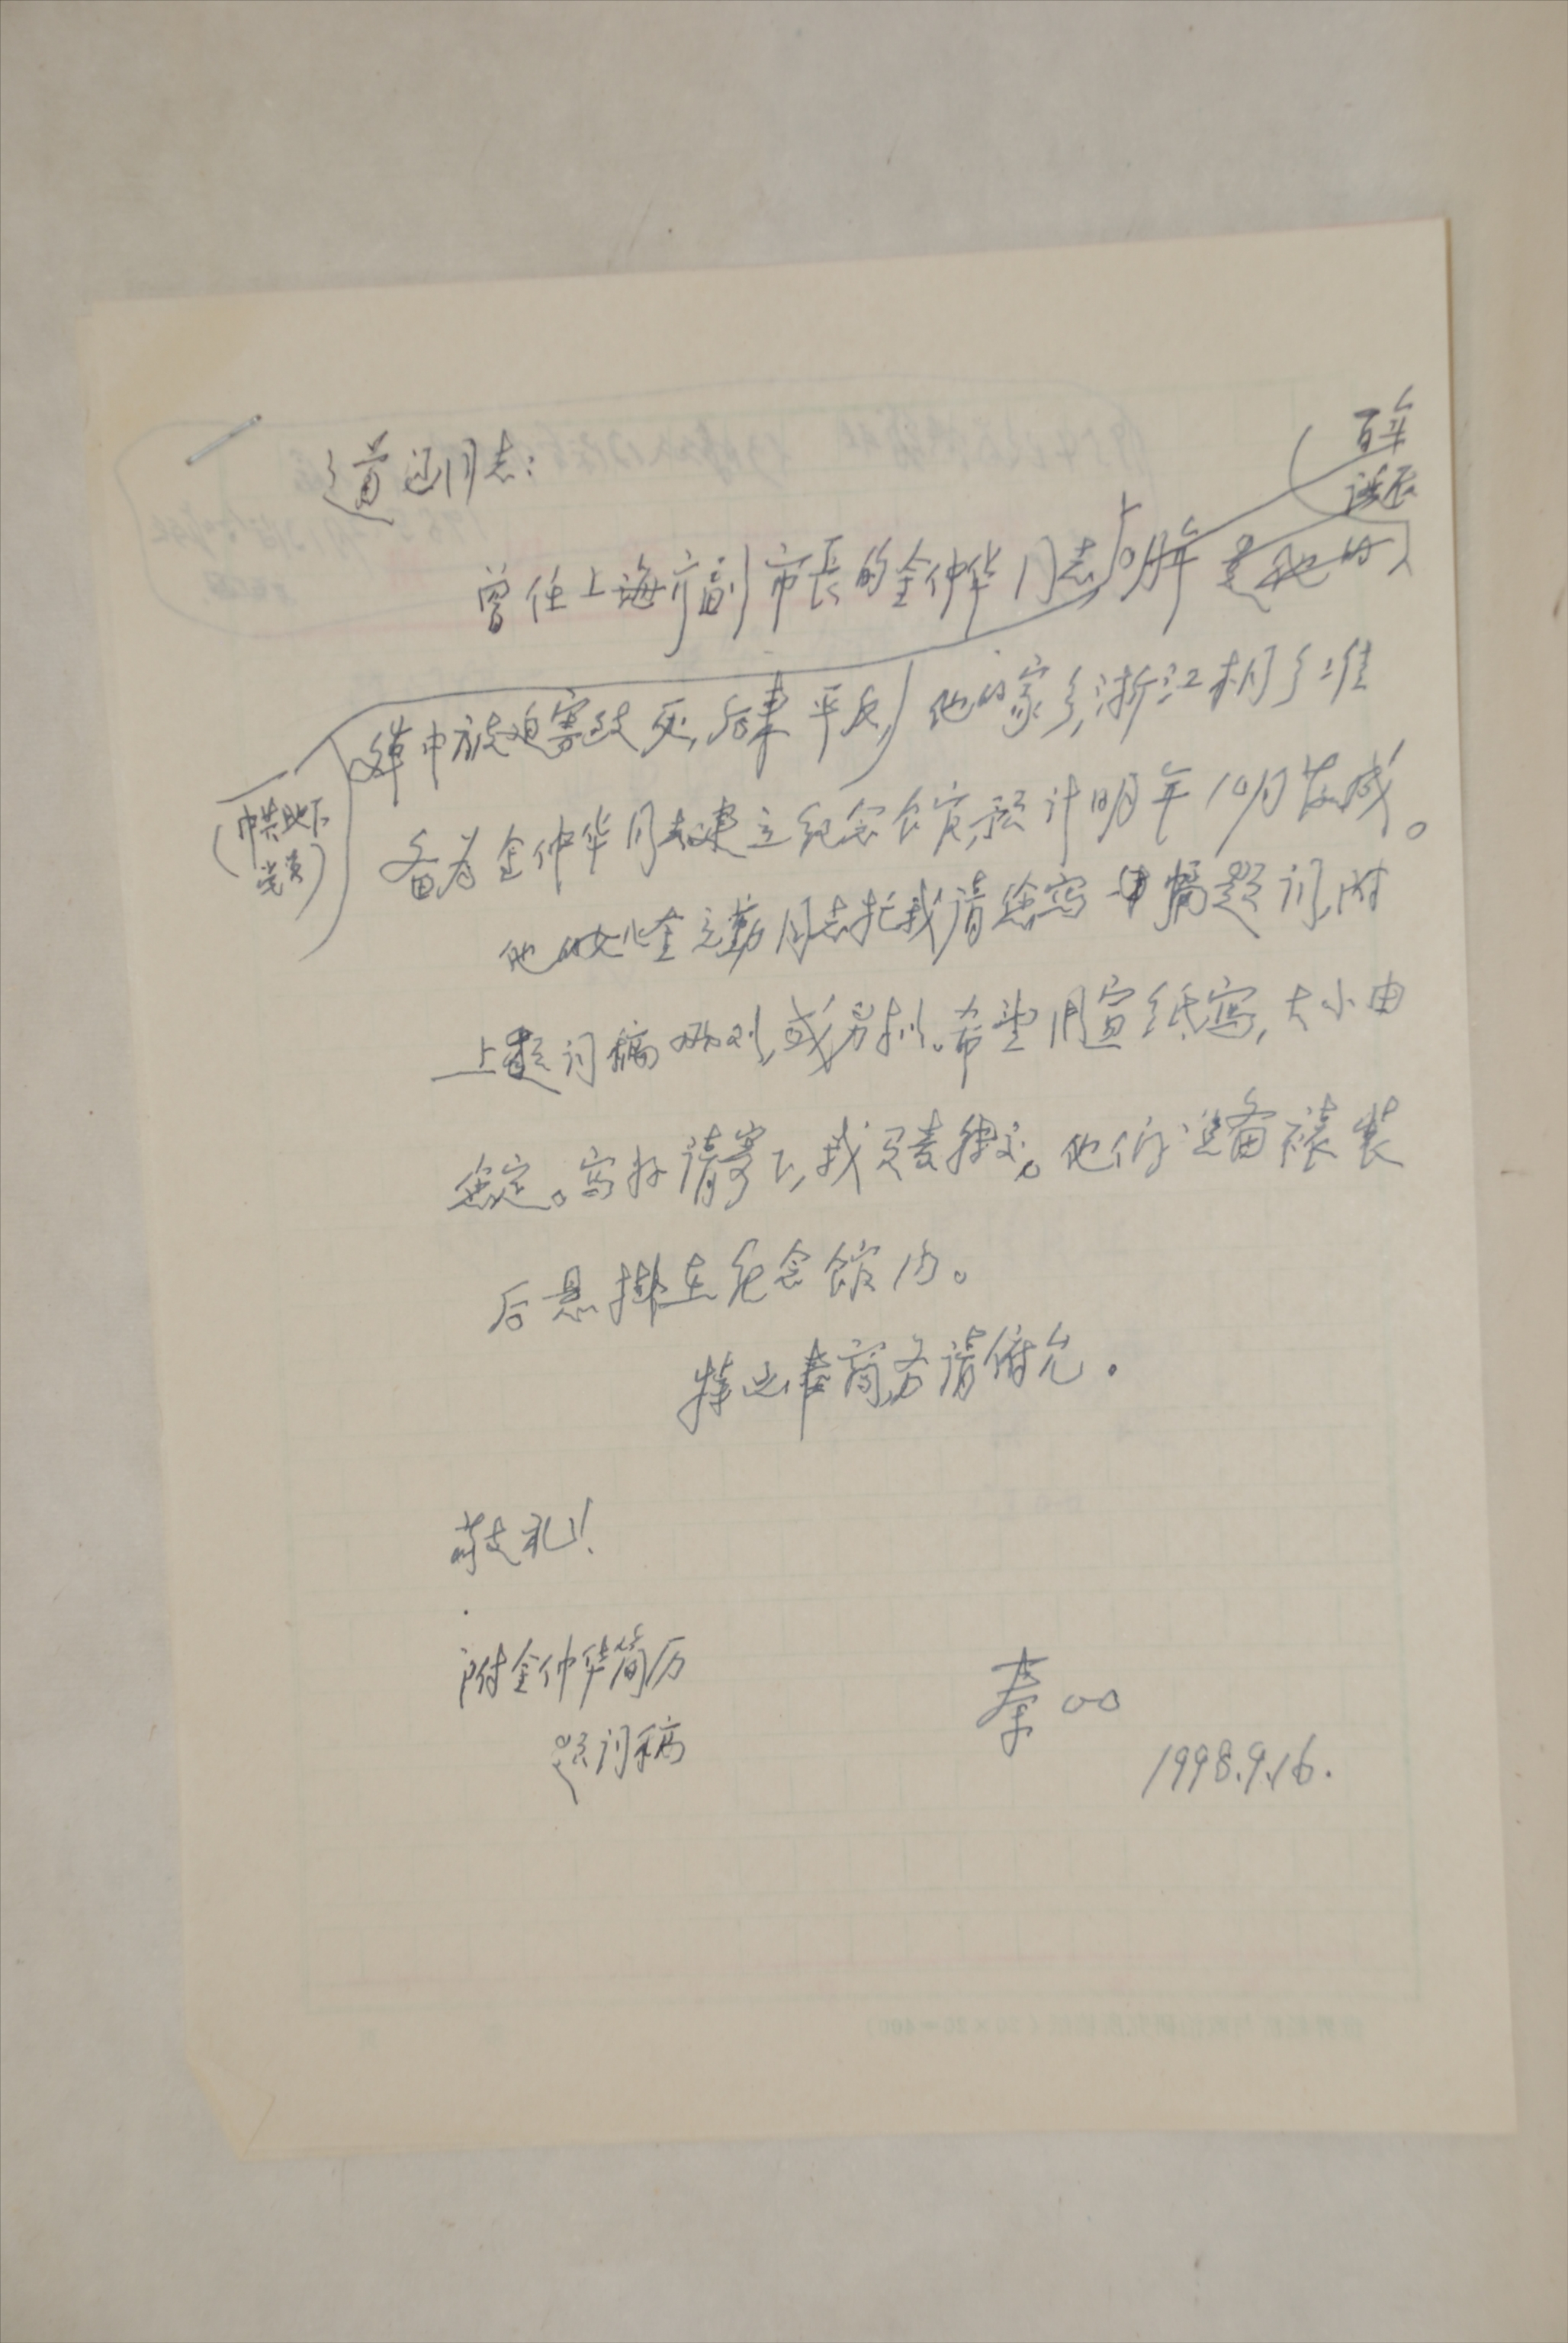 道涵同志：
百年
诞辰
曾任上海市副市长的金仲华同志 明年是他的
文革中被迫害致死，后来平反，他的家乡浙江桐乡准
（中共地下
党员）
备为金仲华同志建立纪念馆，预计明年10月落成。
他的女儿金立勤同志托我请您写一幅题词，附
上题词稿两则，或另拟。希望用宣纸写，大小由
您定。写好请寄下，我负责转交。他们准备裱装
后悬挂在纪念馆内。
特此奉商，务请俯允。
敬礼！
附金仲华简历
题词稿
秦
1998.9.16.